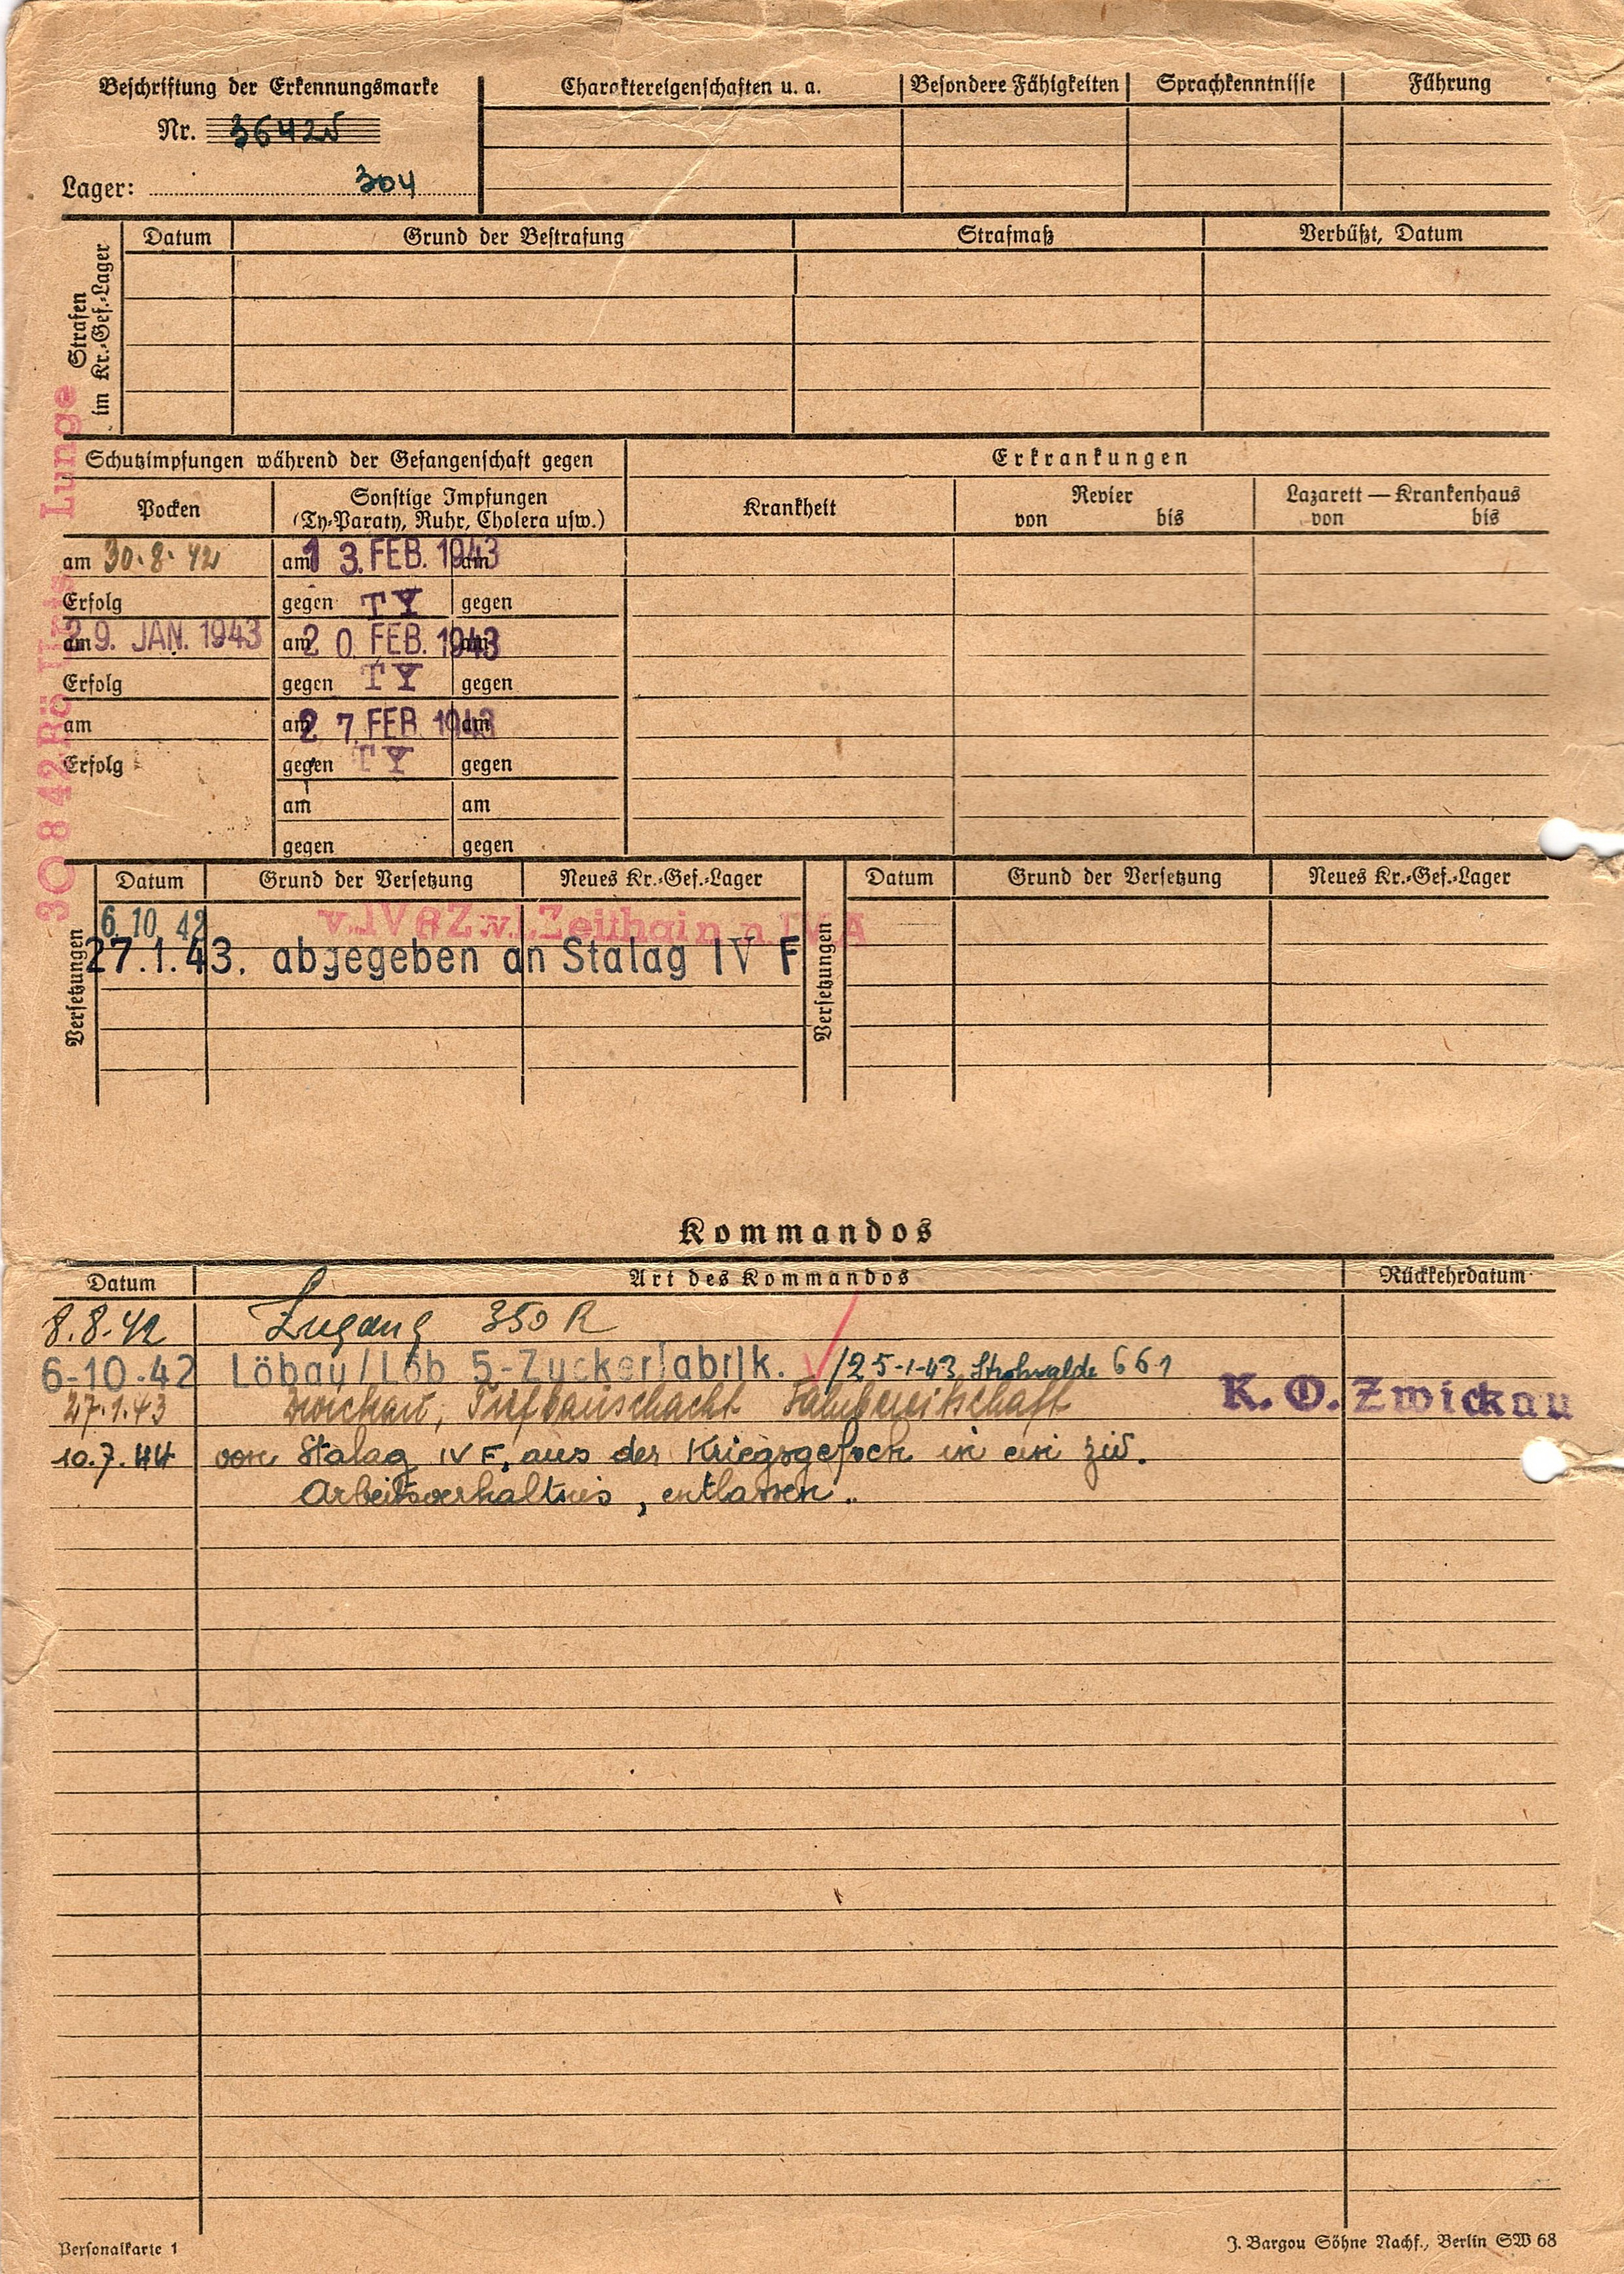 Beschriftung der Erkennungsmarke
Nr. 36425
Lager: 304
Charaktereigenschaften u. a.
Besondere Fähigkeiten
Sprachkenntnisse
Führung
Strafen
im Kr.-Gef.-Lager
Datum
Grund der Bestrafung
Strafmaß
Verbüßt, Datum
Schutzimpfungen während der Gefangenschaft gegen
Erkrankungen
Pocken
Sonstige Impfungen
(Ty-Paraty, Ruhr, Cholera usw.)
Krankheit
Revier
von bis
Lazarett — Krankenhaus
von bis
am 30.8.42
am 13. FEB. 1943
am
Erfolg
gegen TY
gegen
am 29. JAN. 1943
am 20. FEB. 1943
am
Erfolg
gegen TY
gegen
am
am 27. FEB. 1943
am
Erfolg
gegen TY
gegen
am
am
gegen
gegen
30 8 42 Rö Lunge
Versetzungen
Datum
Grund der Versetzung
Neues Kr.-Gef.-Lager
Versetzungen
Datum
Grund der Versetzung
Neues Kr.-Gef.-Lager
6. 10. 42 Zeithain n. IV A
27.1.43. abgegeben an Stalag IV F
Kommandos
Datum
Art des Kommandos
Rückkehrdatum
8.8.42 Zugang 350 R
6-10-42 Löbau/Löb 5-Zuckerfabrik. /25-1-43 Strohwalde 661
27.1.43 Zwickau, Tiefbauschacht Fahrbereitschaft K. O. Zwickau
10.7.44 von Stalag IV F, aus der Kriegsgefsch in ein ziv.
Arbeitsverhältnis, entlassen.
Personalkarte 1
J. Bargou Söhne Nachf., Berlin SW 68